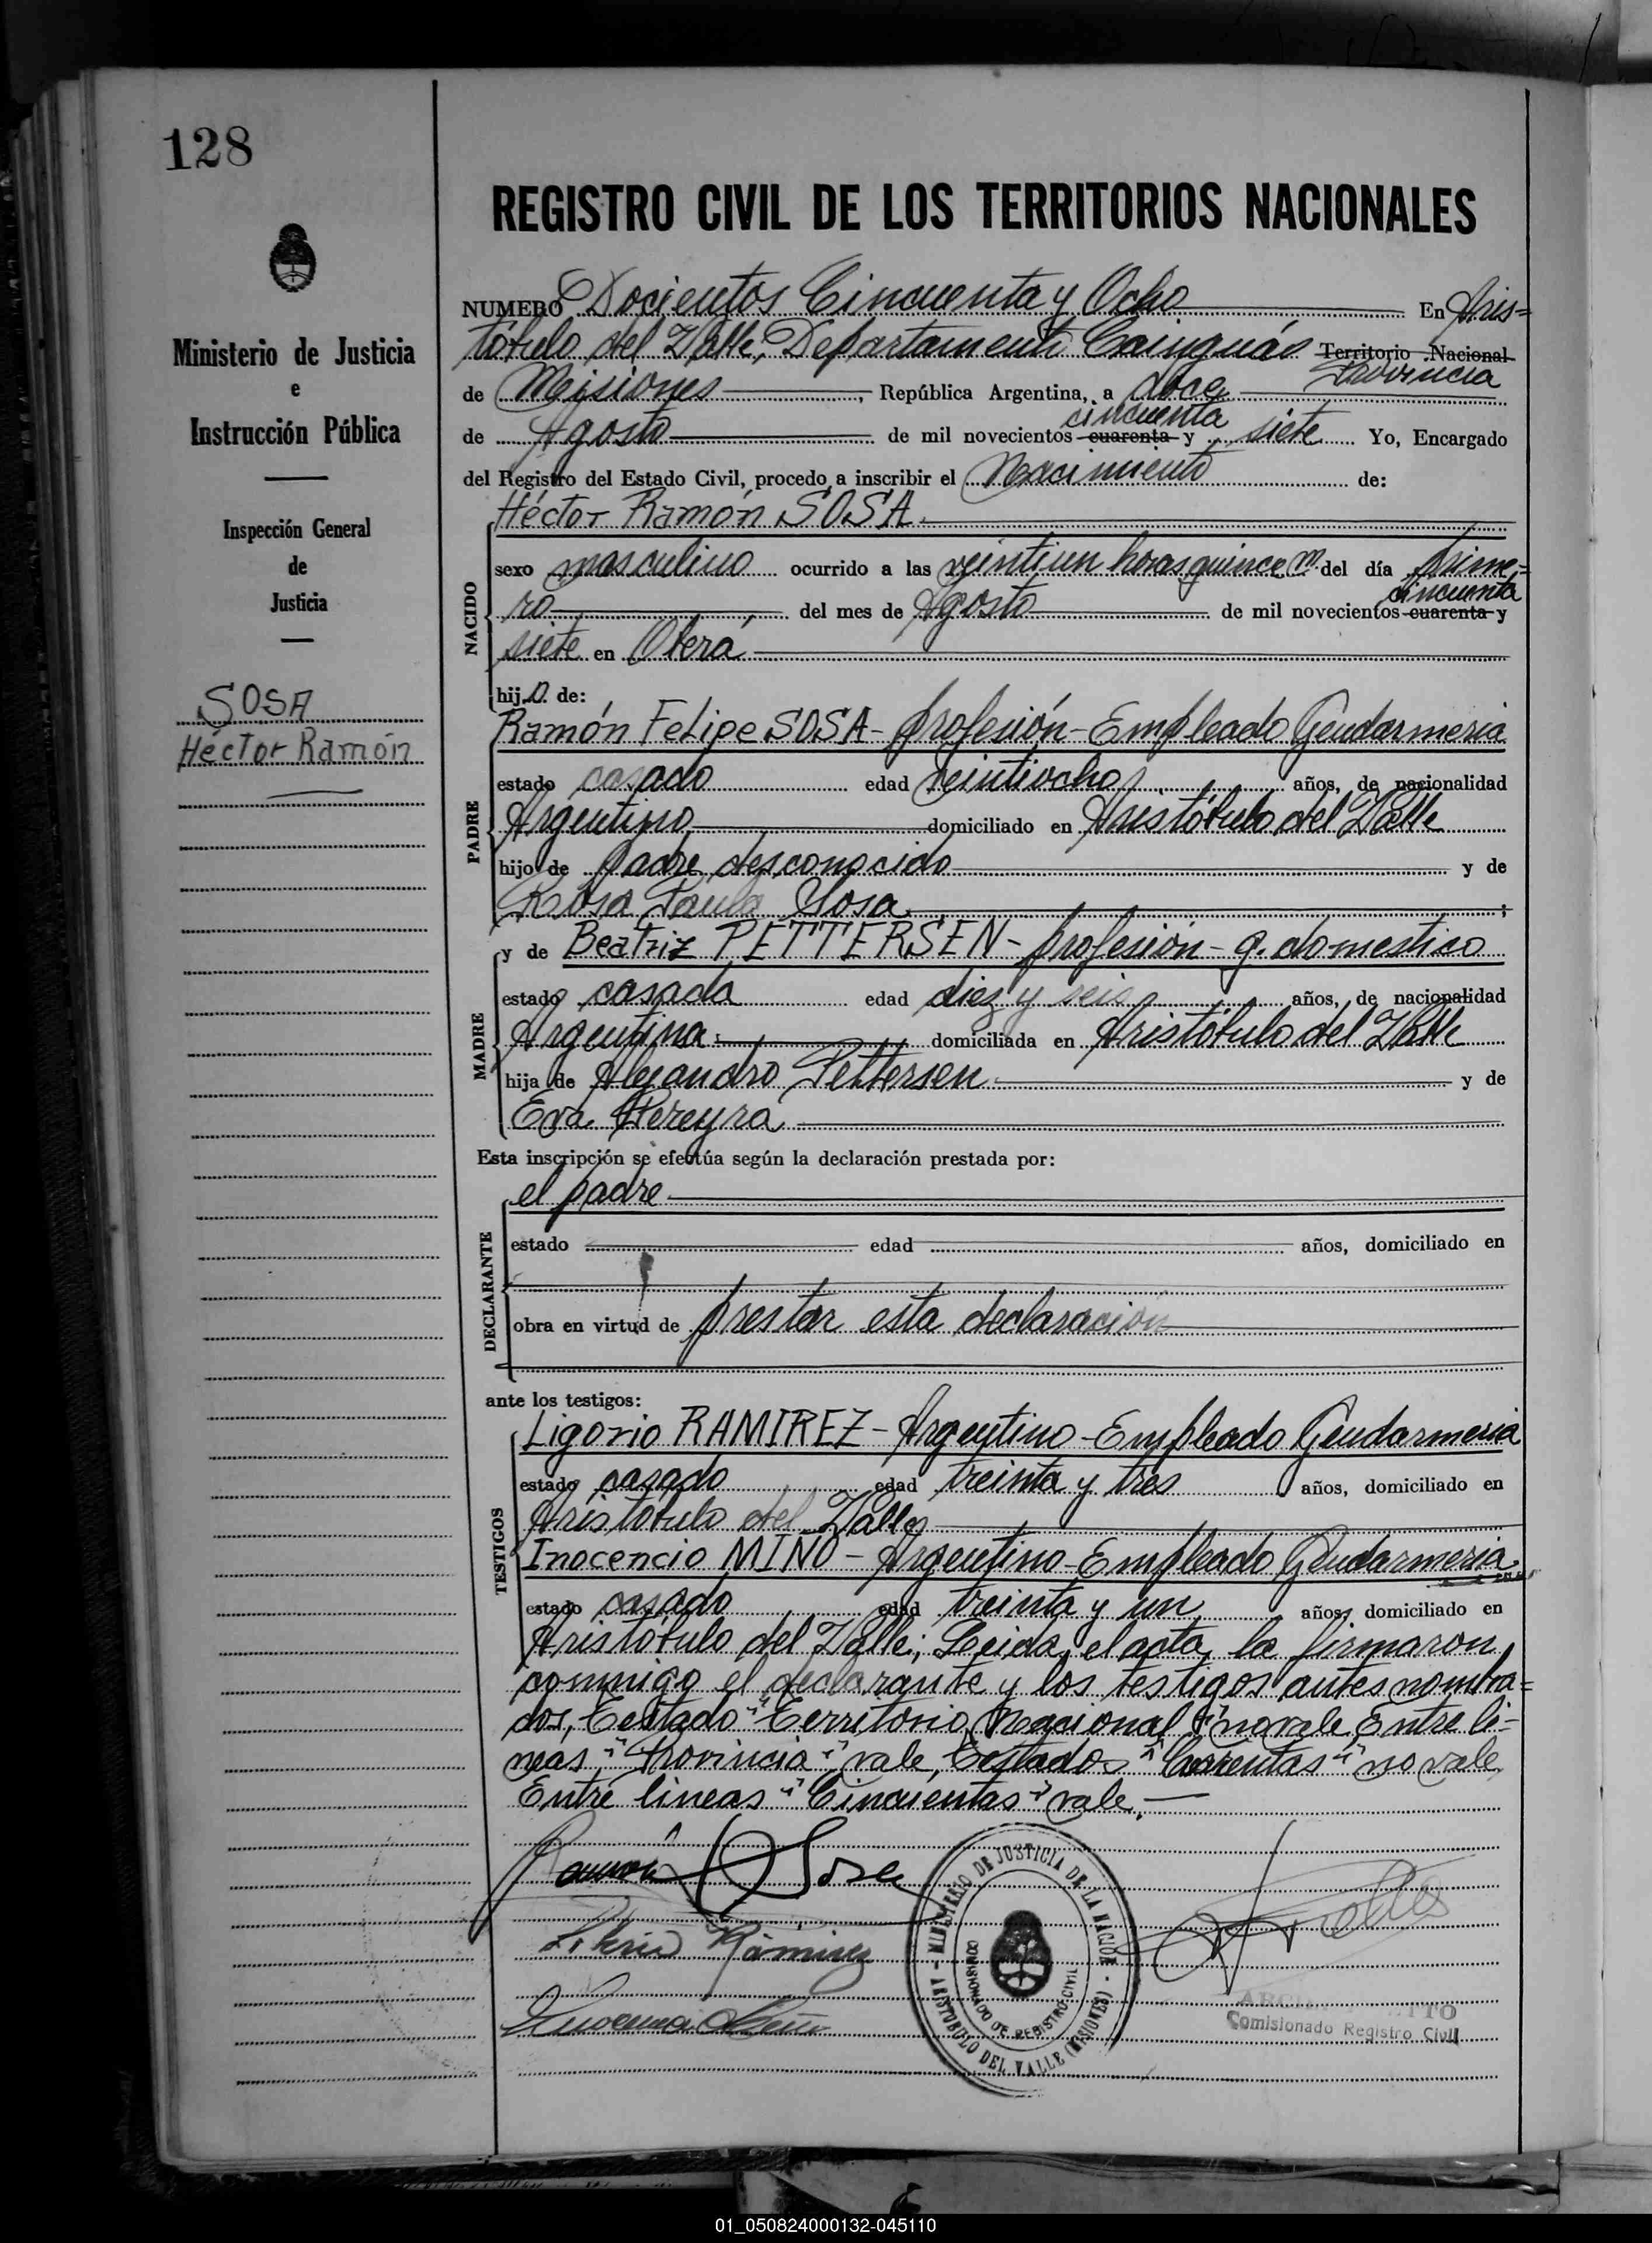 128
REGISTRO CIVIL DE LOS TERRITORIOS NACIONALES
Ministerio de Justicia
e
Instrucción Pública
Inspección General
de
Justicia
SOSA
Héctor Ramón
NUMERO Docientos Cincuenta y Ocho En Aris=
tóbulo del Valle, Departamento Cainguás Territorio Nacional
Provincia
de Misiones, República Argentina, a doce
cincuenta
de Agosto de mil novecientos cuarenta y siete Yo, Encargado
del Registro del Estado Civil, procedo a inscribir el Nacimiento de:
NACIDO
Héctor Ramón SOSA
sexo masculino ocurrido a las veintiun horas quince m. del día prime=
cincuenta
ro del mes de Agosto de mil novecientos cuarenta y
siete en Oberá
hijo de:
PADRE
Ramón Felipe SOSA - profesión - Empleado Gendarmeria
estado casado edad veintiocho años, de nacionalidad
Argentino domiciliado en Aristóbulo del Valle
hijo de padre desconocido y de
Rosa Paula Sosa ;
MADRE
y de Beatriz PETTERSEN - profesión - q. domestico
estado casada edad diez y seis años, de nacionalidad
Argentina domiciliada en Aristóbulo del Valle
hija de Alejandro Pettersen y de
Eva Pereyra
Esta inscripción se efectúa según la declaración prestada por:
DECLARANTE
el padre
estado edad años, domiciliado en
obra en virtud de prestar esta declaración
ante los testigos:
TESTIGOS
Ligorio RAMIREZ - Argentino - Empleado Gendarmeria
estado casado edad treinta y tres años, domiciliado en
Aristóbulo del Valle
Inocencio MIÑO - Argentino - Empleado Gendarmeria
estado casado edad treinta y un años, domiciliado en
Aristóbulo del Valle; Leida el acta, la firmaron
conmigo el declarante y los testigos antes nombra=
dos, Testado "Territorio Nacional" no vale, Entre li-
neas "Provincia" vale, Testados "Cuarentas" no vale,
Entre lineas "Cincuentas" vale.
Ramón Sosa
Ramirez
MINISTERIO DE JUSTICIA DE LA NACION
COMISIONADO DE REGISTRO CIVIL
ARISTOBULO DEL VALLE (MISIONES)
Comisionado Registro Civil
01_050824000132-045110